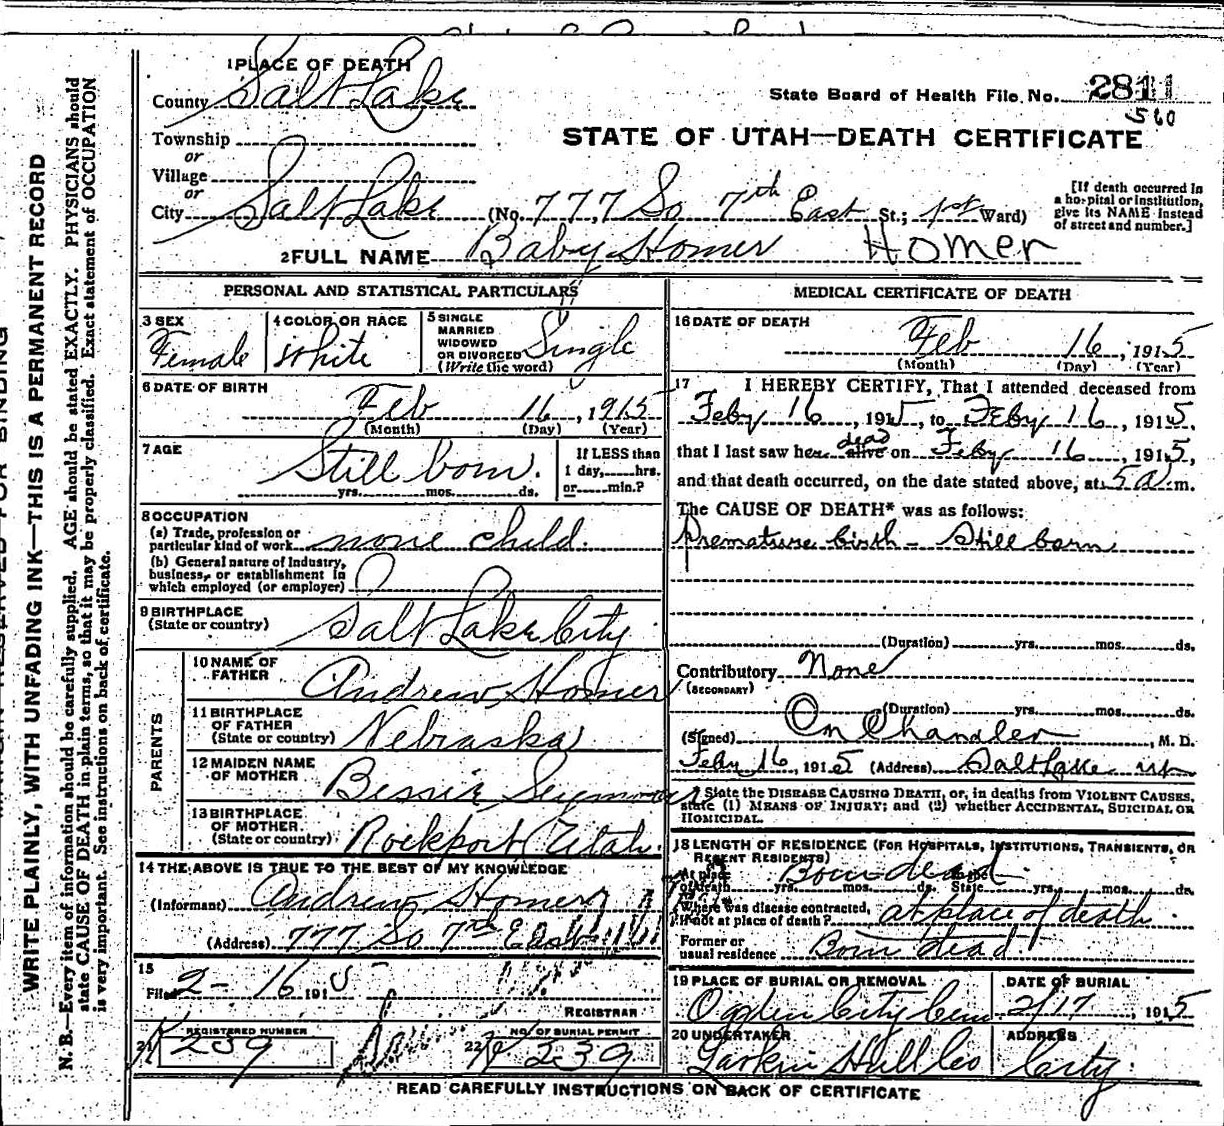 1 PLACE OF DEATH
County Salt Lake
State Board of Health File No. 2811
560
Township
or
Village
or
City Salt Lake (No. 777 So 7th East St.; 1st Ward)
STATE OF UTAH—DEATH CERTIFICATE
[If death occurred in a hospital or institution, give its NAME instead of street and number.]
2 FULL NAME Baby Homer Homer
PERSONAL AND STATISTICAL PARTICULARS
3 SEX Female
4 COLOR OR RACE White
5 SINGLE MARRIED WIDOWED OR DIVORCED (Write the word) Single
6 DATE OF BIRTH
Feb 16, 1915
(Month) (Day) (Year)
7 AGE
Still born.
yrs. mos. ds.
If LESS than 1 day, hrs. or min.?
8 OCCUPATION
(a) Trade, profession or particular kind of work none child.
(b) General nature of industry, business, or establishment in which employed (or employer)
9 BIRTHPLACE (State or country) Salt Lake City
PARENTS
10 NAME OF FATHER Andrew Homer
11 BIRTHPLACE OF FATHER (State or country) Nebraska
12 MAIDEN NAME OF MOTHER Bessie Seymour
13 BIRTHPLACE OF MOTHER. (State or country) Rockport Utah.
14 THE ABOVE IS TRUE TO THE BEST OF MY KNOWLEDGE
(Informant) Andrew Homer
(Address) 777 So 7th East
15
Filed 2-16 1915
REGISTRAR
21 REGISTERED NUMBER 239
22 NO. OF BURIAL PERMIT 239
MEDICAL CERTIFICATE OF DEATH
16 DATE OF DEATH
Feb 16, 1915
(Month) (Day) (Year)
17 I HEREBY CERTIFY, That I attended deceased from
Feby 16, 1915, to Feby 16, 1915.
that I last saw her alive dead on Feby 16, 1915,
and that death occurred, on the date stated above, at 5 a.m.
The CAUSE OF DEATH* was as follows:
Premature birth - Still born
(Duration) yrs. mos. ds.
Contributory None
(SECONDARY)
(Duration) yrs. mos. ds.
(Signed) Chandler, M. D.
Feby 16, 1915 (Address) Salt Lake
State the DISEASE CAUSING DEATH, or, in deaths from VIOLENT CAUSES,
state (1) MEANS OF INJURY; and (2) whether ACCIDENTAL, SUICIDAL OR
HOMICIDAL.
18 LENGTH OF RESIDENCE (FOR HOSPITALS, INSTITUTIONS, TRANSIENTS, OR
RECENT RESIDENTS)
At place of death yrs. mos. ds. State yrs. mos. ds.
Born dead
Where was disease contracted,
If not at place of death? at place of death.
Former or usual residence Born dead
19 PLACE OF BURIAL OR REMOVAL Ogden City Cem
DATE OF BURIAL 2/17, 1915
20 UNDERTAKER Larkin Hull Co
ADDRESS City
READ CAREFULLY INSTRUCTIONS ON BACK OF CERTIFICATE
WRITE PLAINLY, WITH UNFADING INK—THIS IS A PERMANENT RECORD
N. B.—Every item of information should be carefully supplied. AGE should be stated EXACTLY. PHYSICIANS should
state CAUSE OF DEATH in plain terms, so that it may be properly classified. Exact statement of OCCUPATION
is very important. See instructions on back of certificate.